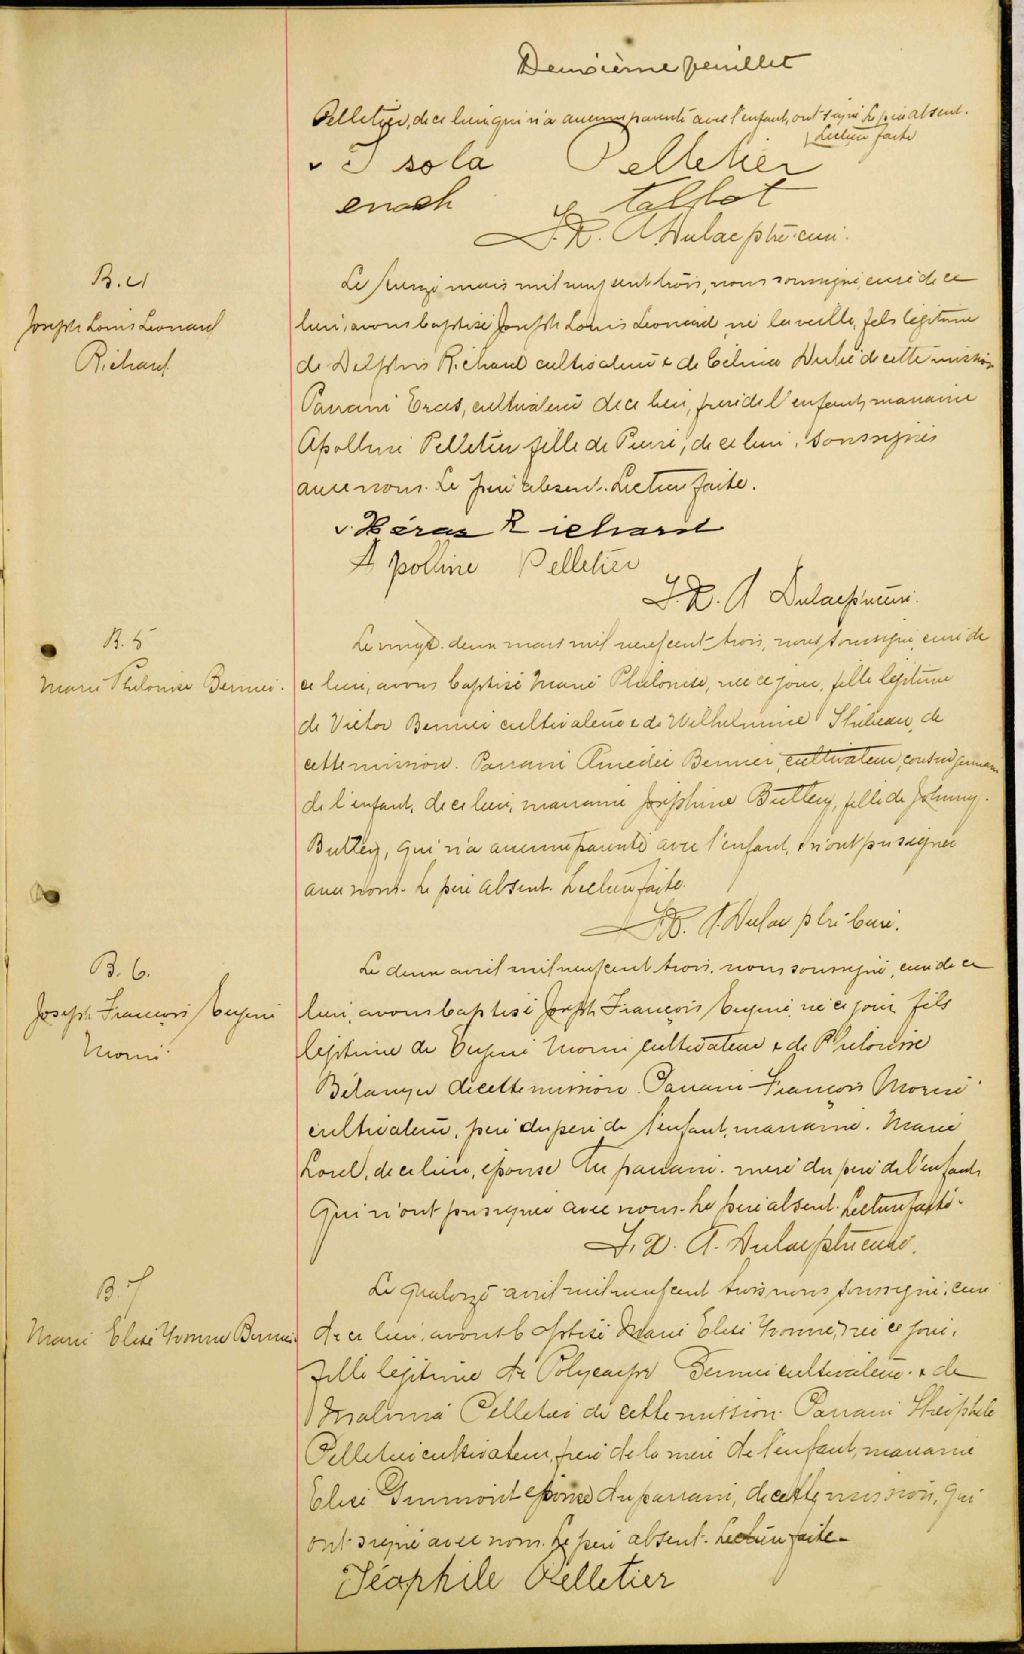 Deuxième feuillet
Pelletier, de ce lieu, qui n'a aucune parenté avec l'enfant, ont signé Le père absent.
Lecture faite
Isola Pelletier
enoch Talbot
J. X. A. Dulac ptre curé.
B. 4
Joseph Louis Leonard
Richard
Le mars mil neuf cent trois, nous soussigné, curé de ce
lieu, avons baptisé Joseph Louis Leonard né la veille, fils légitime
de Delphis Richard cultivateur & de Célina Dubé de cette mission
Parrain Eras, cultivateur de ce lieu, frère de l'enfant, marraine
Apolline Pelletier fille de Pierre, de ce lieu, soussignés
avec nous. Le père absent. Lecture faite.
v. Héras Richard
Apolline Pelletier
J. X. A Dulac ptre curé.
B. 5
Marie Philonise Bernier.
Le vingt-deux mars mil neuf cent trois, nous soussigné, curé de
ce lieu, avons baptisé Marie Philonise, née ce jour, fille légitime
de Victor Bernier cultivateur & de Wilhelmine Thibeau, de
cette mission. Parrain Amédée Bernier, cultivateur, cousin germain
de l'enfant, de ce lieu, marraine Joséphine Buttey, fille de Johnny
Buttey, qui n'a aucune parenté avec l'enfant, & n'ont pu signer
avec nous. Le père absent. Lecture faite.
J. X. A. Dulac ptre Curé.
B. 6.
Joseph François Eugène
Morin
Le deux avril mil neuf cent trois, nous soussigné, curé de ce
lieu, avons baptisé Joseph François Eugène, né ce jour, fils
légitime de Eugène Morin cultivateur & de Philonise
Bélanger de cette mission. Parrain François Morin
cultivateur, père du père de l'enfant, marraine. Marie
de ce lieu, épouse du parrain. mère du père de l'enfant,
qui n'ont pu signer avec nous. Le père absent. Lecture faite.
J. X. A. Dulac ptre curé.
B. 7
Marie Elise Yvonne Bernier
Le quatorze avril mil neuf cent trois nous soussigné, curé
de ce lieu, avons baptisé Marie Elise Yvonne, née ce jour,
fille légitime de Polycarpe Bernier cultivateur & de
Malvina Pelletier de cette mission. Parrain Théophile
Pelletier cultivateur, frère de la mère de l'enfant, marraine
Elise épouse du parrain, de cette mission, qui
ont signé avec nous. Le père absent. Lecture faite.
Téophile Pelletier